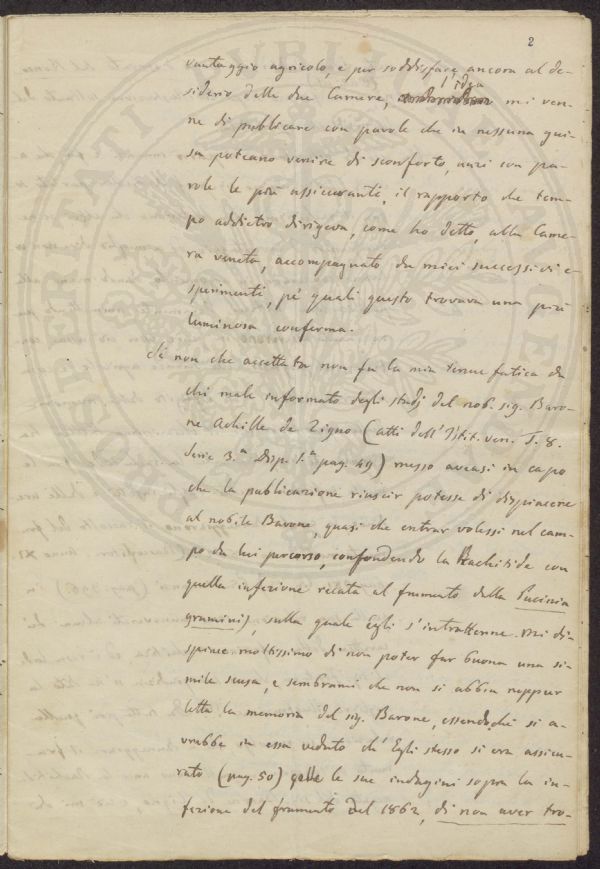 2
vantaggio agricolo, e per soddisfare ancora al de-
siderio delle due Camere, l'idea mi ven-
ne di publicare con parole che in nessuna gui-
sa poteano venire di sconforto, anzi con pa-
role le più assicuranti, il rapporto che tem-
po addietro dirigeva, come ho detto, alla Came-
ra veneta, accompagnato da miei successivi e-
sperimenti, pe' quali questo trovava una più
luminosa conferma.
Se non che accettata non fu la mia tenue fatica da
chi male informato degli studj del nob. sig. Baro-
ne Achille de Zigno (atti dell'Istit. ven. T. 8.
Serie 3.ª Disp. 1.ª pag. 49) messo aveasi in capo
che la publicazione riuscir potesse di dispiacere
al nobile Barone, quasi che entrar volessi nel cam-
po da lui percorso, confondendo la Rachitide con
quella infezione recata al frumento dalla Pucinia
graminis, sulla quale Egli s'intrattenne. Mi di-
spiace moltissimo di non poter far buona una si-
mile scusa, e sembrami che non si abbia neppur
letta la memoria del sig. Barone, essendoché si a-
vrebbe in essa veduto ch'Egli stesso si era assicu-
rato (pag. 50) le sue indagini sopra la in-
fezione del frumento del 1862, di non aver tro-